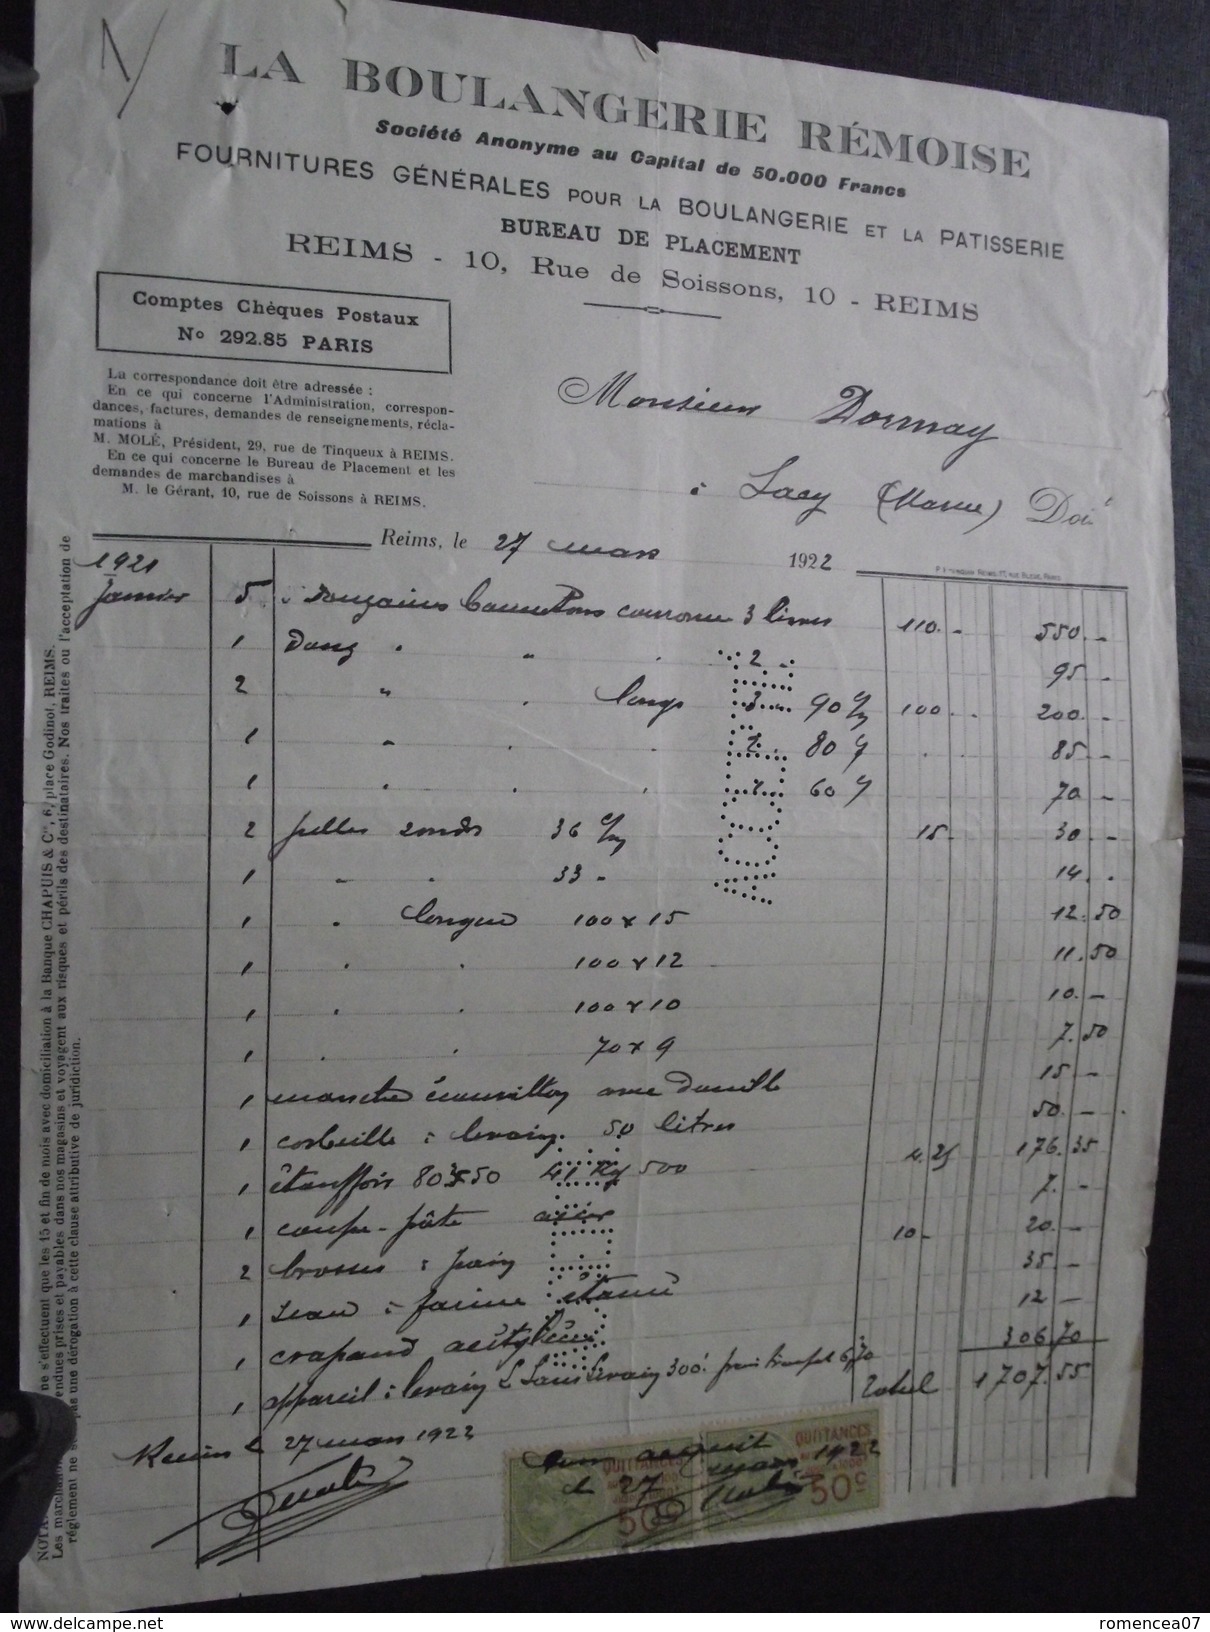 LA BOULANGERIE RÉMOISE
Société Anonyme au Capital de 50.000 Francs
FOURNITURES GÉNÉRALES POUR LA BOULANGERIE ET LA PATISSERIE
BUREAU DE PLACEMENT
REIMS - 10, Rue de Soissons, 10 - REIMS
Comptes Chèques Postaux
No 292.85 PARIS
La correspondance doit être adressée :
En ce qui concerne l'Administration, correspon-
dances, factures, demandes de renseignements, récla-
mations à
M. MOLÉ, Président, 29, rue de Tinqueux à REIMS.
En ce qui concerne le Bureau de Placement et les
demandes de marchandises à
M. le Gérant, 10, rue de Soissons à REIMS.
Monsieur Dormay
à (Marne) Doit
Reims, le 27 mars 1922
1921
Janvier 5 Douzaines couronne 3 livres 110. - 550. -
1 Douz " " " 2 " 95 -
2 " " longs 3 " 90 c/m 100 200. -
1 " " 2 " 80 85. -
1 " " " 60 70 -
2 pelles rondes 36 c/m 15 - 30 -
1 " " 33 " 14 -
1 " longue 100 x 15 12.50
1 " " 100 x 12 11.50
1 " " 100 x 10 10. -
1 " " 70 x 9 7.50
1 manche écouvillon avec douille 15 -
1 corbeille à levain 50 litres 50. -
1 étouffoir 80 x 50 41 Kg 500 4.25 176.35
1 coupe-pâte acier 7. -
2 brosses à pain 10 - 20. -
1 seau à farine étamé 35 -
1 crapaud acétylène 12 -
1 appareil à levain 300 6,70 306.70
Total 1707.55
Reims le 27 mars 1922
QUITTANCES
50c
QUITTANCES
50c
Pour acquit
le 27 mars 1922
NOTA.
ne s'effectuent que les 15 et fin de mois avec domiciliation à la Banque CHAPUIS & Cie, 6, place Godinot, REIMS.
Les marchandises
vendues prises et payables dans nos magasins et voyagent aux risques et périls des destinataires. Nos traites ou l'acceptation de
règlement ne sont pas une dérogation à cette clause attributive de juridiction.
www.delcampe.net
romencea07